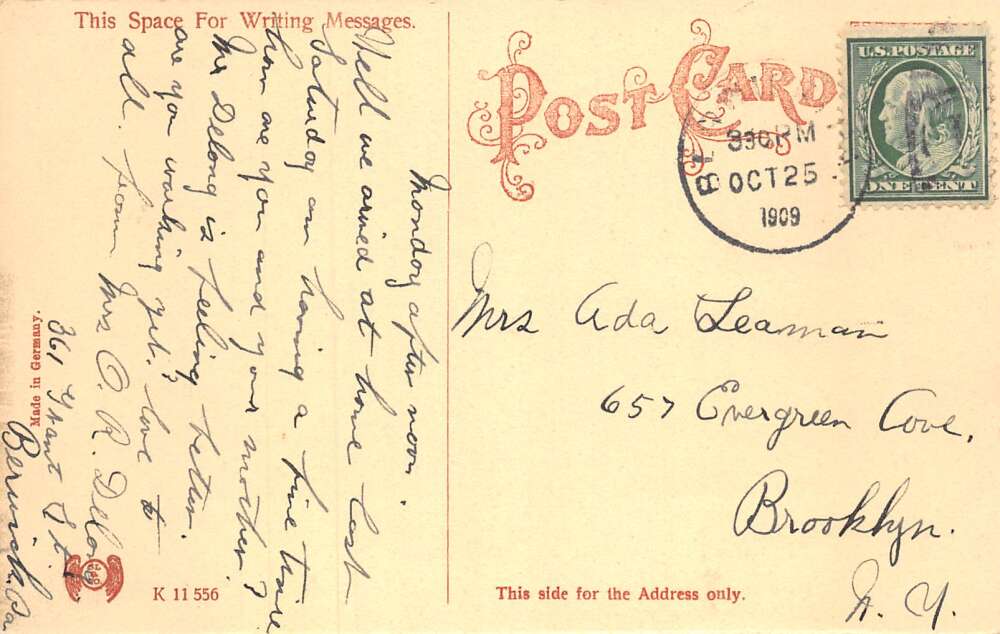 This Space For Writing Messages.
Monday after noon.
Well we arived at home last
Saturday am having a fine time
how are you and your mother?
Mr Delong is feeling better.
are you working yet? love to
all. from Mrs O. R. DeLong
361 Grant St.
Berwick. Pa
Made in Germany.
K 11 556
POST CARD
U.S. POSTAGE
ONE CENT
830 PM
OCT 25
1909
Mrs Ada Leaman
657 Evergreen Cove.
Brooklyn.
N. Y.
This side for the Address only.